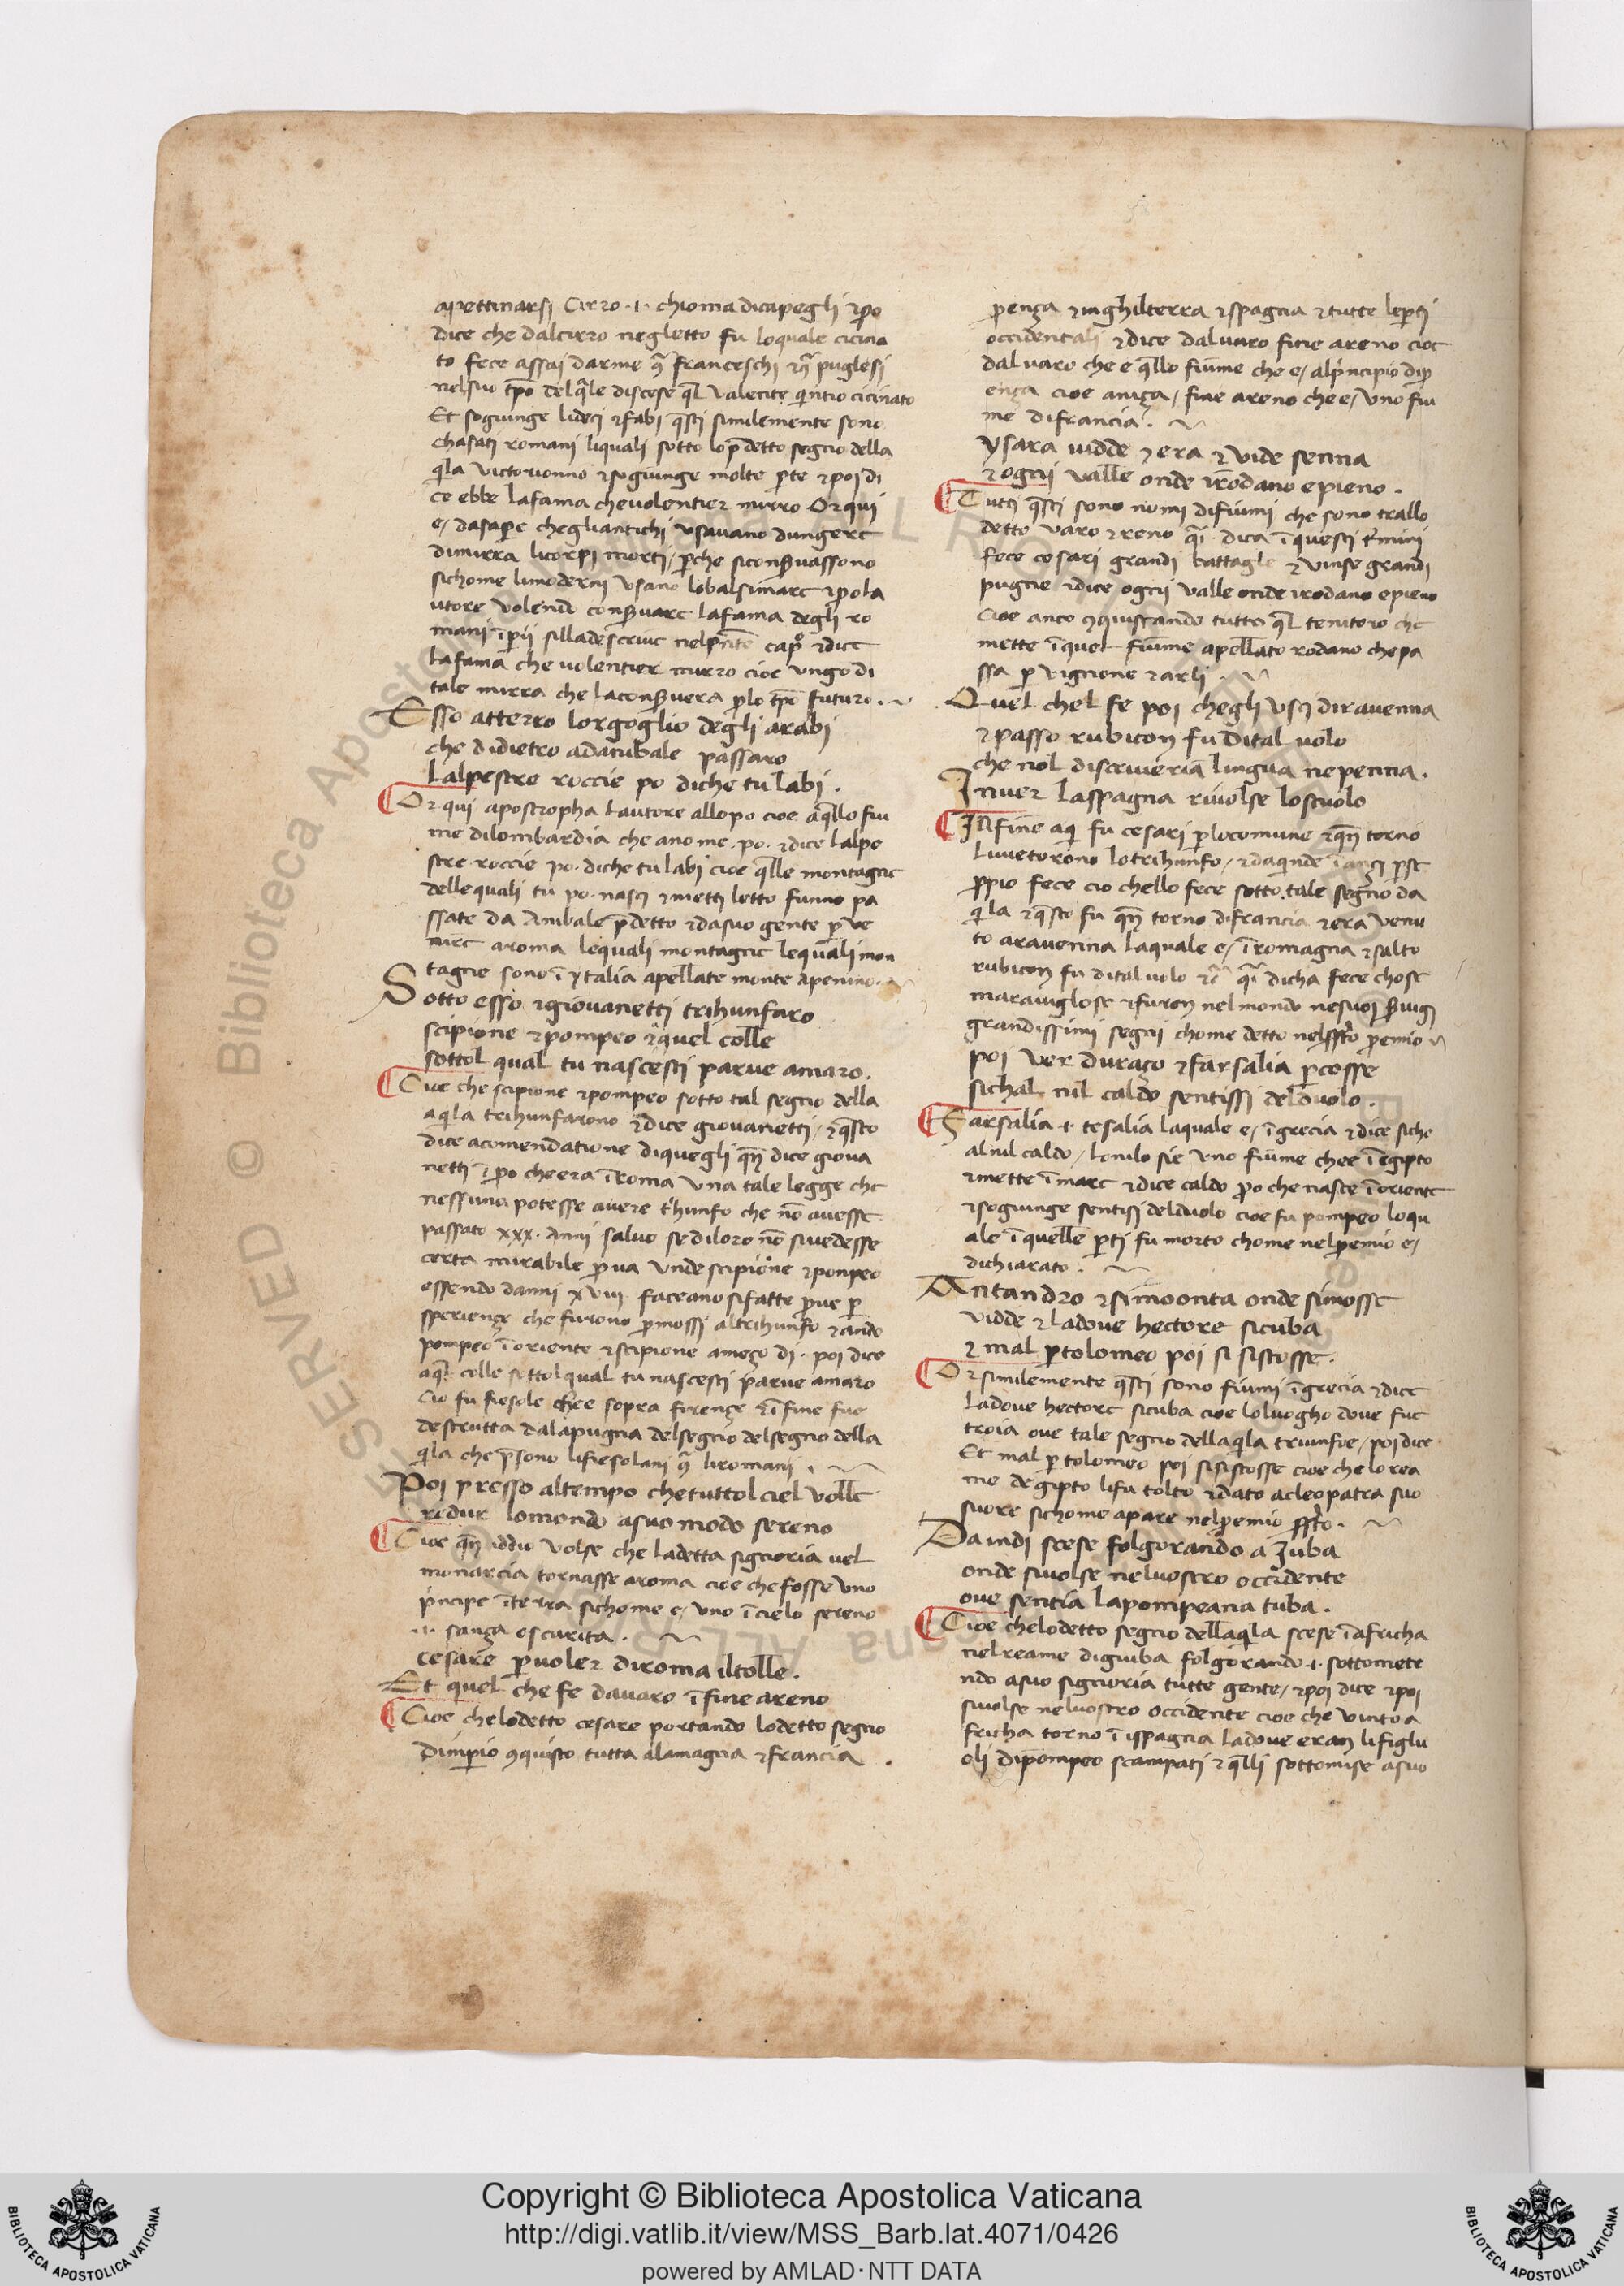 apettinarsi Cirro .i. chioma dicapegli ⁊ p̄o
dice che dalcirro negletto fu loquale cicina
to fece assai darme ꝯͣ franceschi ⁊ ꝯͣ puglesi
nelsuo tp̄o delq̄le discese q̄l valente quintio cicinato
Et sogiunge lideci ⁊ fabi q̄sti similemente sono
chasati romani liquali sotto lop̄detto segno della
q̄la victorionno ⁊ sogiunge molte p̱te ⁊ poi di
ce ebbe lafama chevolentier mirro Or qui
e/ dasap̱e chegliantichi vsavano dungere
dimirra licorpi morti/ p̱che siconẞuassono
sichome limoderni vsano lobalsimare ⁊ p̱o la
utore volendo conẞuare lafama degli ro
mani īp̱ii silladescriue nelp̄nte cap̊ ⁊ dice
lafama che volentier mirro cioe vngo di
tale mirra che laconẞuera p̱lo tp̄o futuro
Esso atterro lorgoglio degli arabi
che didietro adanibale passaro
lalpestre roccie po diche tu labi .
Or qui apostropha lautore allopo cioe aq̄llo fiu
me dilombardia che anome . po . ⁊ dice lalpe
stre roccie po . diche tu labi cioe q̄lle montagne
dellequali tu po . nasci ⁊ metti letto funno pa
ssate da Anibale p̄detto ⁊ dasuo gente p̱ ve
nire aroma lequali montagne lequali mon
tagne sono ī ytalia apellate monte apenino .
Sotto esso ⁊ giovanetti trihunfaro
scipione ⁊ pompeo ⁊ aquel colle
sottol qual tu nascesti parue amaro .
Cioe che scipione ⁊ pompeo sotto tal segno della
aq̄la trihunfarono ⁊ dice giovanetti/ ⁊ q̄sto
dice acomendatione diquegli qn̄ dice giova
netti īp̱o cheera ī Roma vna tale legge che
nessuno potesse avere t̄hunfo che nō auesse
passato xxx . Anni saluo sediloro nō sivedesse
certa mirabile p̱ua vnde scipione ⁊ ponpeo
essendo danni xviij . faceano sifatte p̱ue p̱
sperienze che furono p̱mossi altrihunfo ⁊ ando
pompeo ī oriente ⁊ scipione amezo di . poi dice
aq̄l colle sottol qual tu nascesti parue amaro
Cio fu fiesole chee sopra firenze ⁊ īfine fue
destrutta dalapugna delsegno delsegno della
q̄la che p̄sono lifiesolani ꝯͣ liromani .
Poi presso altempo chetuttol ciel volle
redur lomondo asuo modo sereno
Cioe qn̄ iddio volse che ladetta signoria vel
monarcia tornasse aroma cioe chefosse vno
p̄ncipe īterra sichome e/ vno īcielo sereno
.i. sanza oscurita .
cesare p̱ uoler diroma iltolle .
Et quel che fe dauaro īfine areno
Cioe chelodetto cesare portando lodetto segno
dimp̱io ꝯquisto tutta alamagna ⁊ francia
p̱enza ⁊ inghilterra ⁊ spagna ⁊ tutte lep̱ti
occidentali ⁊ dice daluaro fine areno cioe
daluaro che e q̄llo fiume che e/ alp̄ncipio dip̱
enza cioe aniza/ fine areno che e/ vno fiu
me difrancia .
ysara vidde ⁊ era ⁊ vide senna
⁊ ogni valle onde irodano e pieno .
Tutti q̄sti sono nomi difiumi che sono trallo
detto varo ⁊ reno q̄i dica īquesti t̄mini
fece cesari grandi battagle ⁊ vinse grandi
pugne ⁊ dice ogni valle onde irodano epieno
cioe anco ꝯquistando tutto q̄l tenitoro che
mette īquel fiume apellato rodano chepa
ssa p̱ vignione ⁊ arli .
Quel chel fe poi chegli vsci diravenna
⁊ passo rubicon fu dital uolo
che nol discriveria lingua nepenna .
Inuer laspagna riuolse lostuolo
Infine aqi fu cesari p̱locomune ⁊ qn̄ torno
liuietorono lotrihunfo/ ⁊ daqinde īanzi p̱se
p̱pio fece cio chello fece sotto tale segno da
q̄la ⁊ q̄sto fu qn̄ torno difrancia ⁊ era venu
to aravenna laquale e/ īromagna ⁊ salto
rubicon fu dital uolo ⁊c̄ q̄i dicha fece chose
marauiglose ⁊ furon nel mondo nesuoi ẞuigi
grandissimi segni chome detto nelssc̄o p̱emio
poi ver durazo ⁊ farsalia p̱cosse
sichal nil caldo sentissi delduolo .
Farsalia .i. tesalia laquale e/ īgrecia ⁊ dice siche
alnil caldo/ lonilo sie vno fiume chee īegipto
⁊ mette īmare ⁊ dice caldo p̱o che nasce īoriente
⁊ sogiunge sentissi delduolo cioe fu pompeo loqu
ale īquelle p̱ti fu morto chome nelp̱emio e/
dichiarato .
Antandro ⁊ simoonta onde simosse
vidde ⁊ ladove hectore sicuba
⁊ mal p̱ tolomeo poi si siscosse .
Or similemente q̄sti sono fiumi īgrecia ⁊ dice
ladove hectore sicuba cioe loluogho dove fue
troia ove tale segno dellaq̄la triunfoe/ poi dice
Et mal p̱ tolomeo poi sisiscosse cioe che lorea
me degipto lifu tolto ⁊ dato acleopatra suo
suore sichome apare nelp̱emio
Da indi scese folgorando a Iuba
onde siuolse neluostro occidente
ove sentia lapompeana tuba .
Cioe chelodetto segno dellaq̄la scese īafricha
nelreame digiuba folgorando .i. sottomete
ndo asuo signoria tutte gente/ ⁊ poi dice ⁊ poi
siuolse neluostro occidente cioe che vinto a
fricha torno ī ispagna ladove eran lifiglu
oli dipompeo scampati ⁊ q̄lli sottomise asuo
Copyright © Biblioteca Apostolica Vaticana
http://digi.vatlib.it/view/MSS_Barb.lat.4071/0426
powered by AMLAD·NTT DATA
BIBLIOTECA APOSTOLICA VATICANA
BIBLIOTECA APOSTOLICA VATICANA